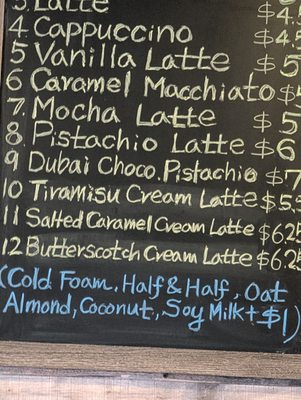 3. Latte $4.
4 Cappuccino $4.5
5 Vanilla Latte $5
6 Caramel Macchiato $
7. Mocha Latte $5
8. Pistachio Latte $6
9 Dubai Choco.Pistachio $7
10 Tiramisu Cream Latte $5.5
11 Salted Caramel Cream Latte $6.25
12 Butterscotch Cream Latte $6.25
(Cold Foam, Half & Half, Oat
Almond, Coconut, Soy Milk + $1)